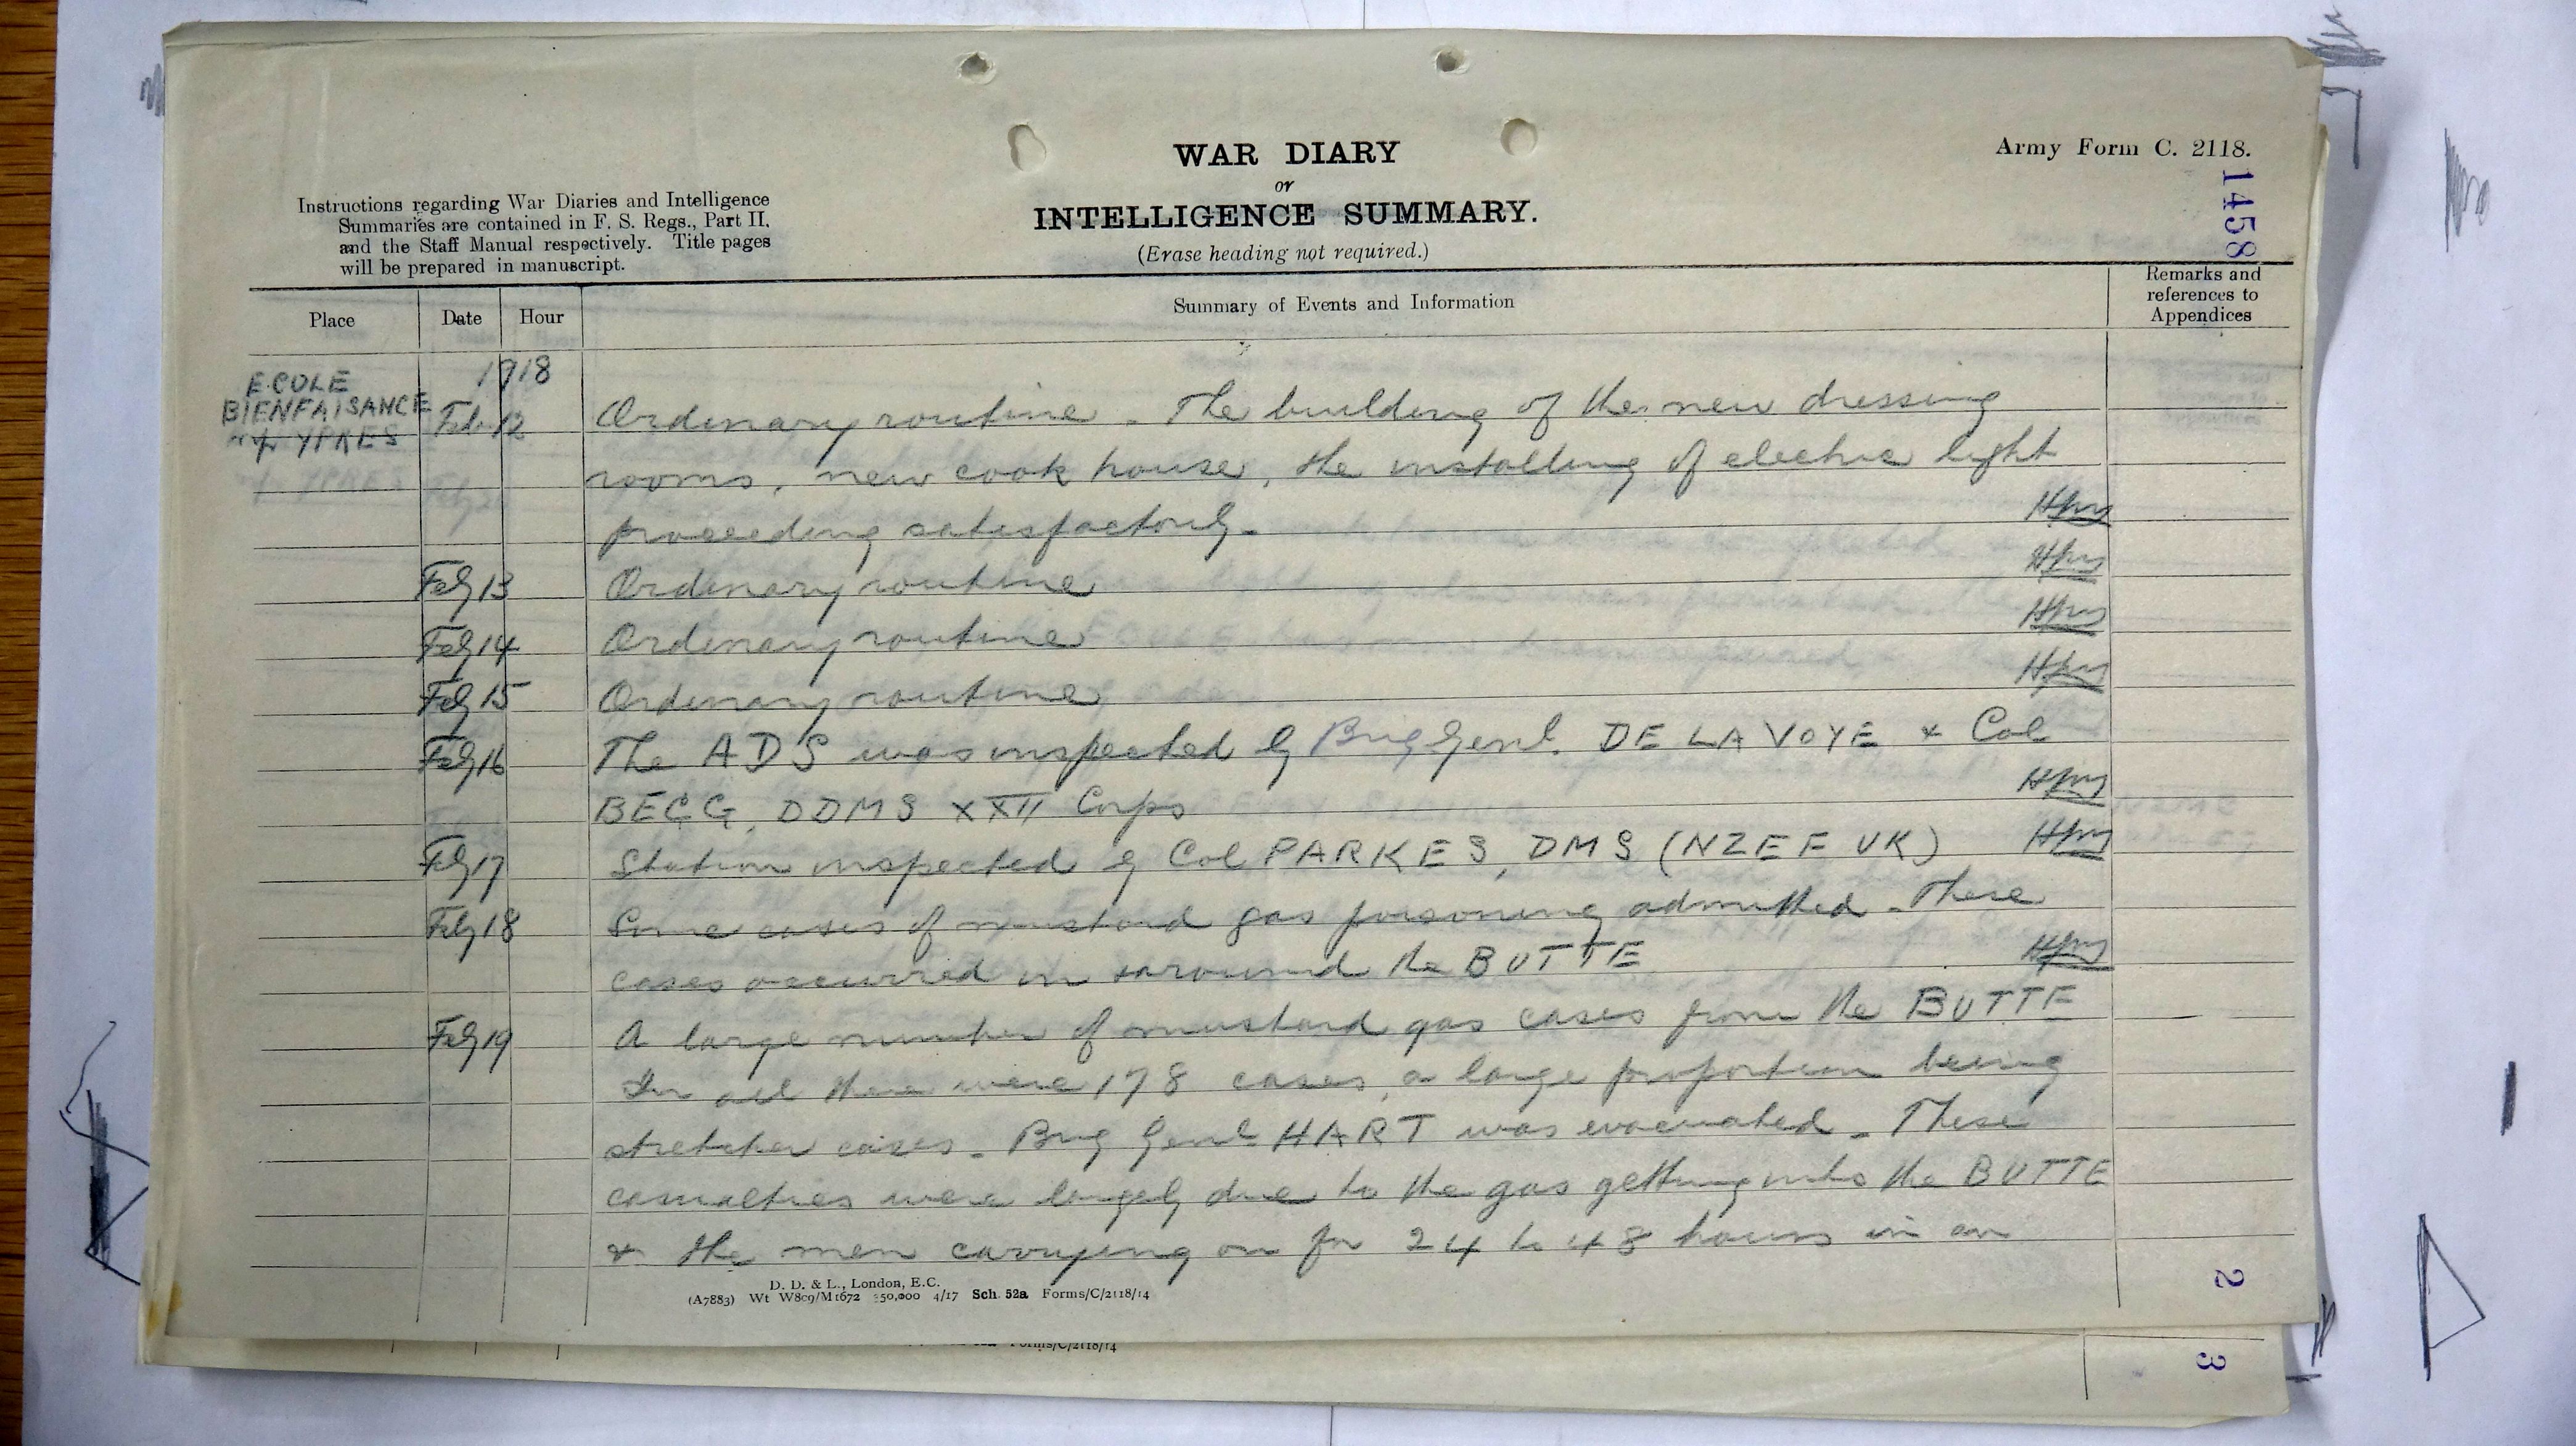 WAR DIARY
or
INTELLIGENCE SUMMARY.
(Erase heading not required.)
Army Form C. 2118.
1458
Instructions regarding War Diaries and Intelligence
Summaries are contained in F. S. Regs., Part II,
and the Staff Manual respectively. Title pages
will be prepared in manuscript.
Place Date Hour Summary of Events and Information Remarks and references to Appendices
ECOLE 1918
BIENFAISANCE
YPRES
Feb 12 Ordinary routine - The building of the new dressing
rooms, new cook house, the installing of electric light
proceeding satisfactorily.
Feby 13 Ordinary routine
Feby 14 Ordinary routine
Feby 15 Ordinary routine
Feby 16 The ADS was inspected by Brig Genl. DE LA VOYE & Col
BEGG, DDMS XXII Corps
Feby 17 Station inspected by Col PARKES, DMS (NZEF UK)
Feby 18 Some cases of mustard gas poisoning admitted - These
cases occurred in & around the BUTTE
Feby 19 A large number of mustard gas cases from the BUTTE
In all there were 178 cases, a large proportion being
stretcher cases - Brig Genl HART was evacuated - These
casualties were largely due to the gas getting into the BUTTE
& the men carrying on for 24 to 48 hours in an
D. D. & L., London, E.C.
(A7883) Wt W809/M1672 350,000 4/17 Sch. 52a Forms/C/2118/14
2
Forms/C/2118/14
3